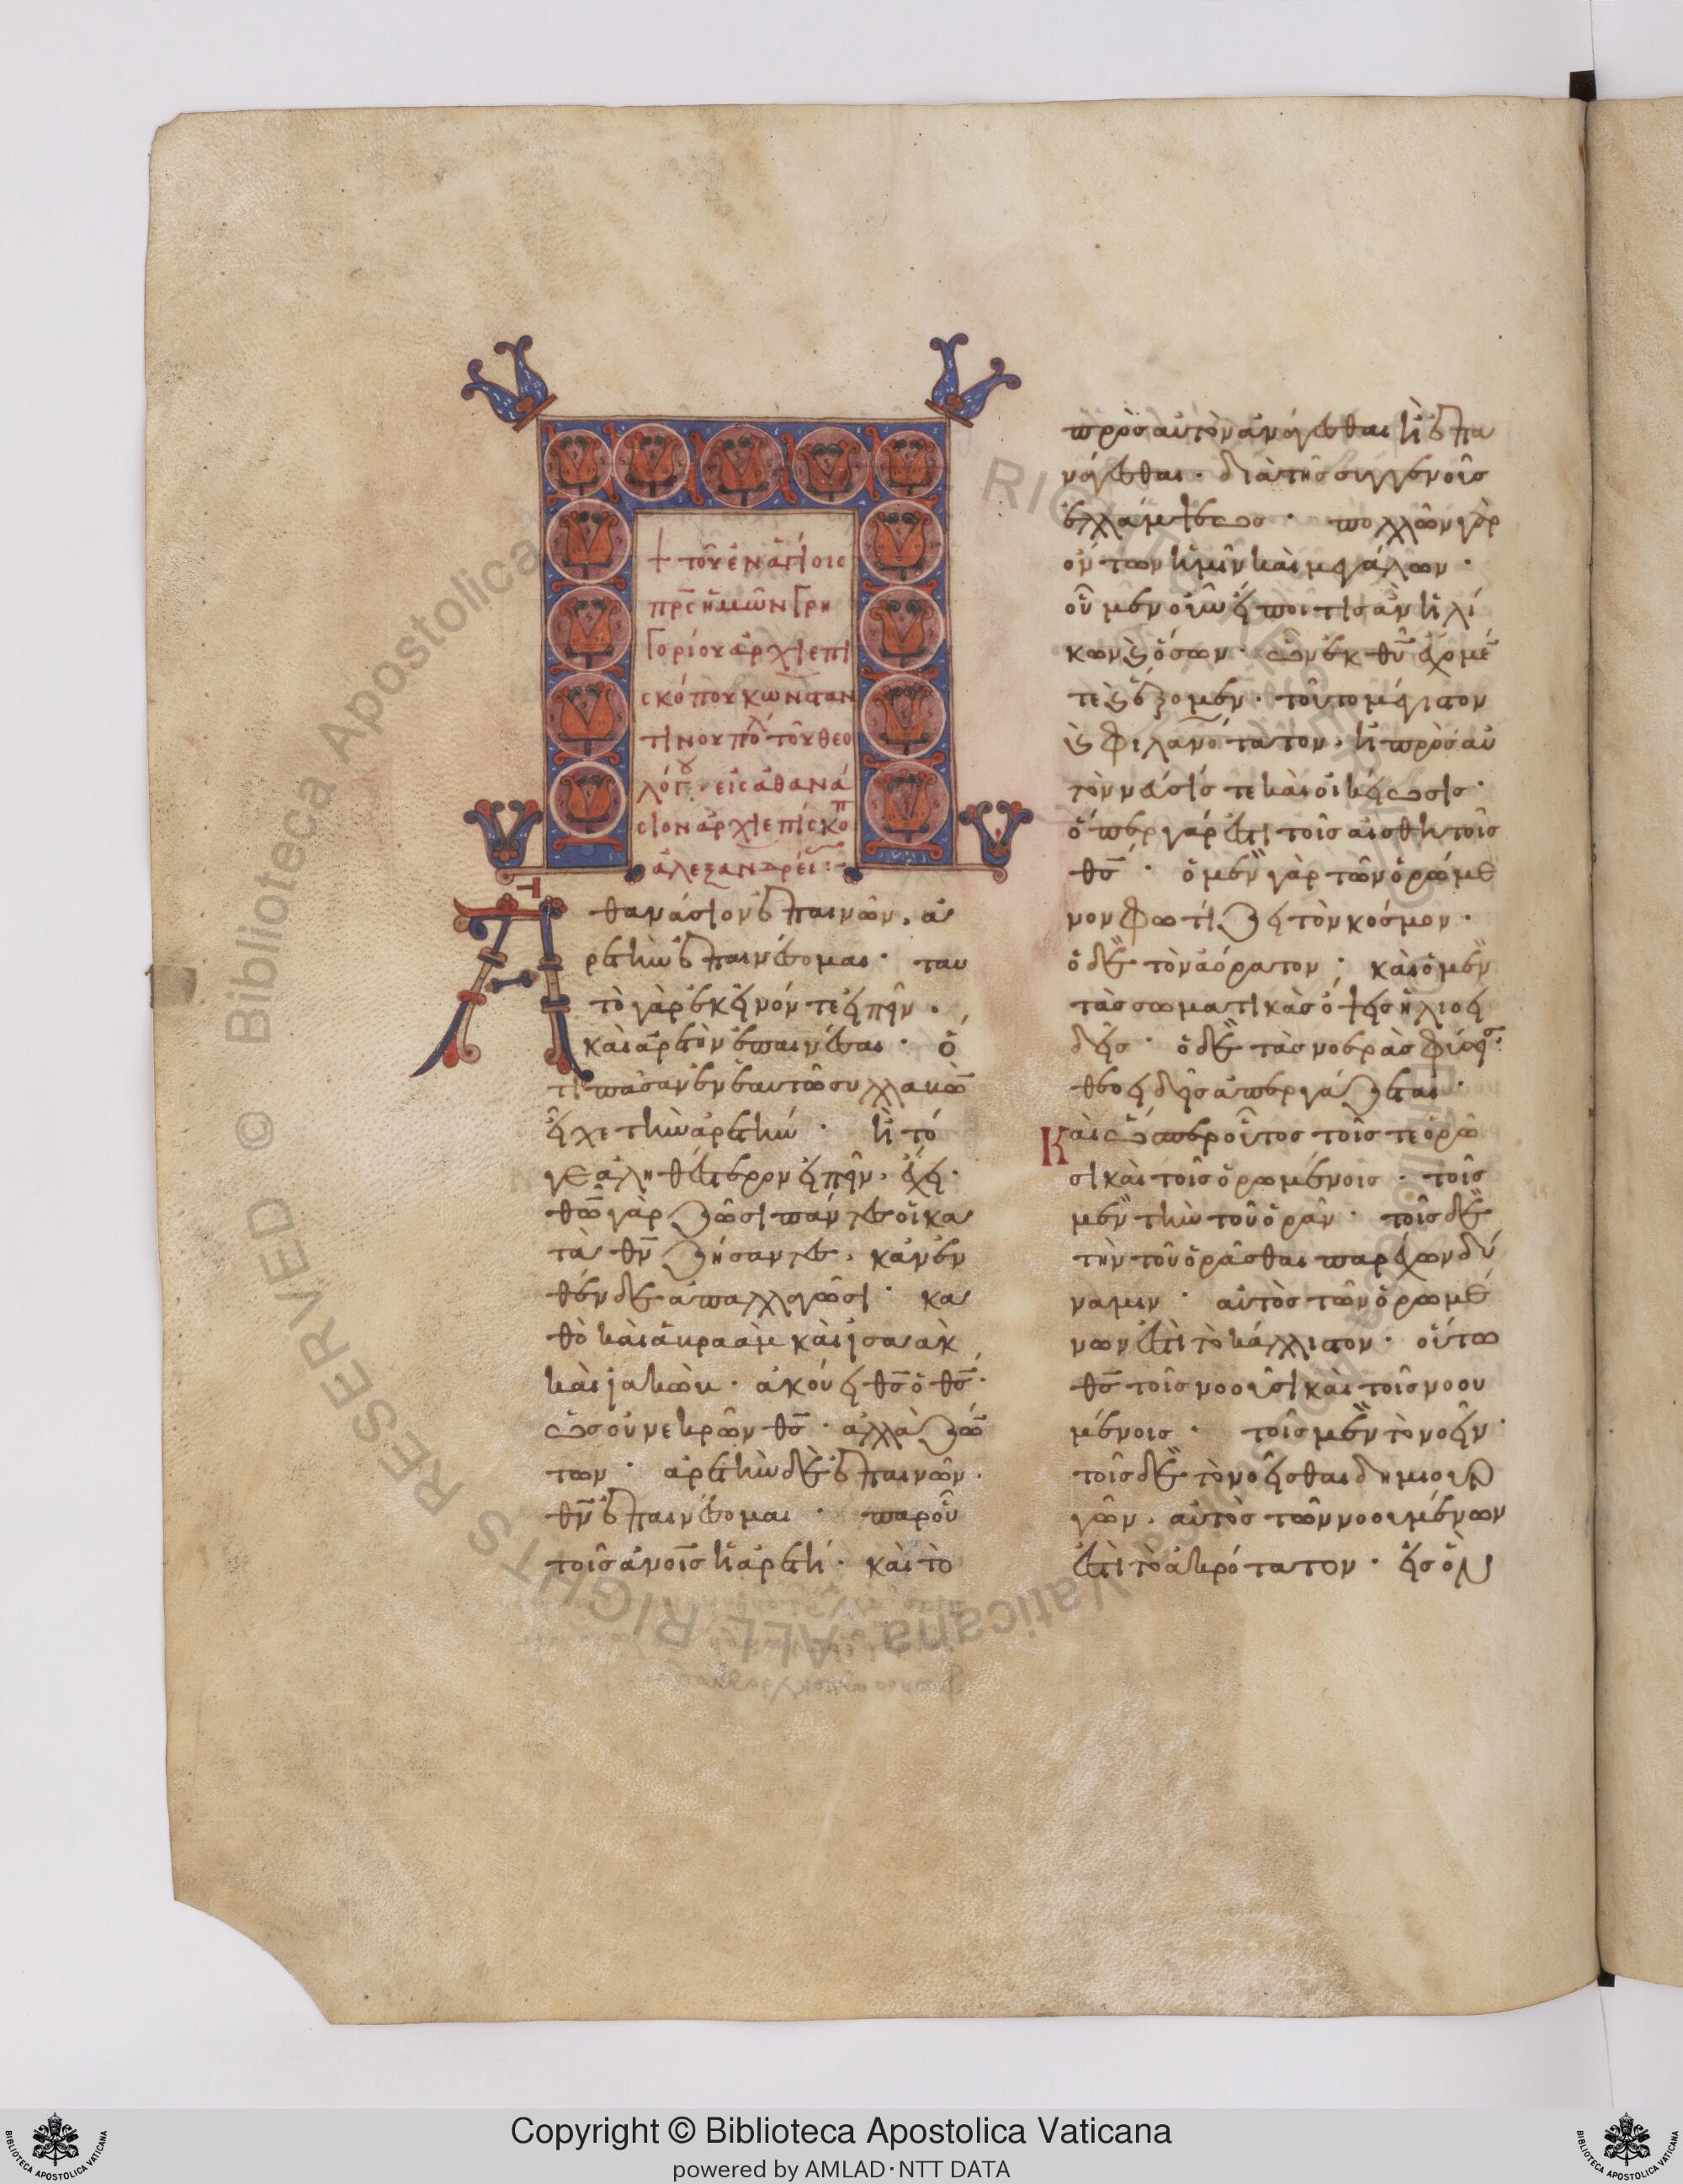 + τοῦ ἐν ἁγίοις
πρ̅ς ἡμῶν Γρη
Γορίου ἀρχιεπι
σκόπου κωνσταν
τίνου πό(λ) τοῦ θεο
λόγ(ου)· εἰς ἀθανά
σιον ἀρχιεπίσκοπ
ἀλεξανδρεί :
Ἀθανάσιον ἐπαινῶν, ἀ
ρετὴν ἐπαινέσομαι· ταυ
τὸ γὰρ ἐκεῖνόν τε εἰπεῖν·
καὶ ἀρετὴν ἐπαινέσαι· ὅ
τι πᾶσαν ἐν ἑαυτῷ συλλαβὼ̅
εἶχε τὴν ἀρετήν· ἢ τό
γε ἀληθέστερον εἰπεῖν, ἔχει·
θῶ̅ γὰρ ζῶσι πάντες οἱ κα
τὰ θν̅ ζήσαντες, κἂν ἐν
θένδε ἀπαλλαγῶσι· κα
θὸ καὶ ἀβραὰμ καὶ ἰσαὰκ
καὶ ἰακὼβ· ἀκούει θς̅ ὁ θς̅·
ὡς οὐ νεκρῶν θς̅· ἀλλὰ ζώ̅
των· ἀρετὴν δὲ ἐπαινῶν·
θν̅ ἐπαινέσομαι· παρ οὗ
τοῖς ἀνοις̅ ἡ ἀρετή· καὶ τὸ
πρὸς αὐτὸν ἀνάγεσθαι ἢ ἐπα
νάγεσθαι· διὰ τῆς συγγενοῦς
ἐλλάμψεως· πολλῶν γὰρ
ὄντων ἡμῖν καὶ μεγάλων·
οὐ μὲν οὖν εἴποι τις ἂν ἡλί
κων καὶ ὅσων· ὧν ἐκ θυ̅ ἔχομέ
τε καὶ ἕξομεν· τοῦτο μέγιστον
καὶ φιλανο̅τατον, ἡ πρὸς αὐ
τὸν νεῦσίς τε καὶ οἰκείωσις·
ὅπερ γάρ ἐστι τοῖς αἰσθητοῖς
θς̅· ὁ μὲν γὰρ τῶν ὁρωμέ
νον φωτίζει τὸν κόσμον·
ὁ δὲ τὸν ἀόρατον· καὶ ὁ μὲν
τὰς σωματικὰς ὄψεις ἡλιοει
δεῖς· ὁ δὲ τὰς νοερὰς φύσεις·
θεοειδεῖς ἀπεργάζεται·
Καὶ ὥσπερ οὗτος τοῖς τε ὁρῶ
σι καὶ τοῖς ὁρωμένοις· τοῖς
μὲν τὴν τοῦ ὁρᾶν· τοῖς δὲ
τὴν τοῦ ὁρᾶσθαι παρέχων δύ
ναμιν· αὐτὸς τῶν ὁρωμέ
νων ἐστὶ τὸ κάλλιστον· οὕτω
θς̅ τοῖς νοοῦσι καὶ τοῖς νοου
μένοις· τοῖς μὲν τὸ νοεῖν·
τοῖς δὲ τὸ νοεῖσθαι δημιουρ
γῶν, αὐτὸς τῶν νοουμένων
ἐστὶ τὸ ἀκρότατον· εἰς ὃν
Copyright © Biblioteca Apostolica Vaticana
powered by AMLAD·NTT DATA